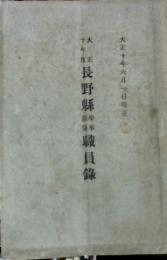 大正十年六月一日現在
大正十年度 長野縣 職員錄